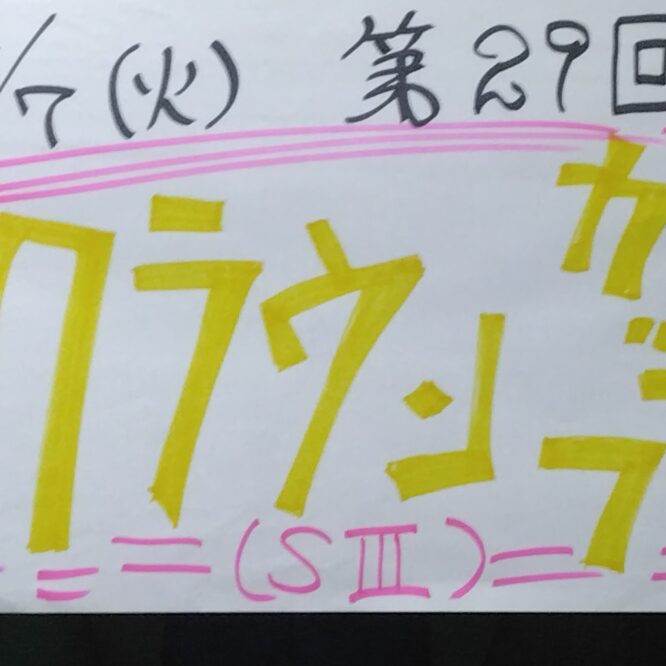 /7(火) 第29回
クラウン
カ
(SⅢ)